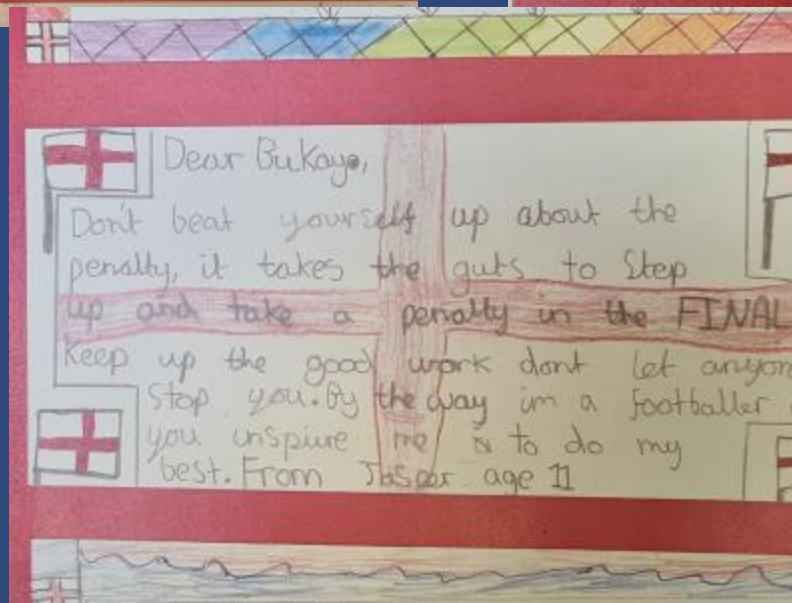 Dear Bukayo,
Don't beat yourself up about the
penalty, it takes the guts to Step
up and take a penalty in the FINAL
Keep up the good work dont let anyon
Stop you. By the way im a footballer
you inspiure me to do my
best. From Jasper age 11